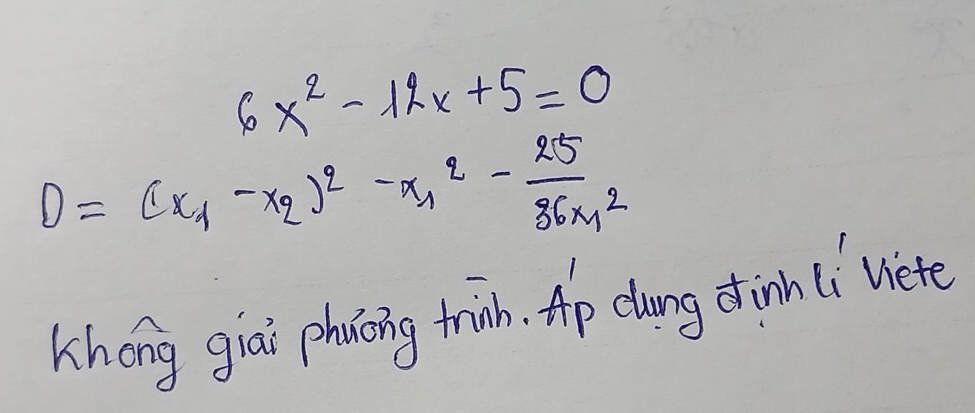 6x² - 12x + 5 = 0
D = (x₁ - x₂)² - x₁² - 25/36x₁²
Không giải phương trình. Áp dụng định lí Viète